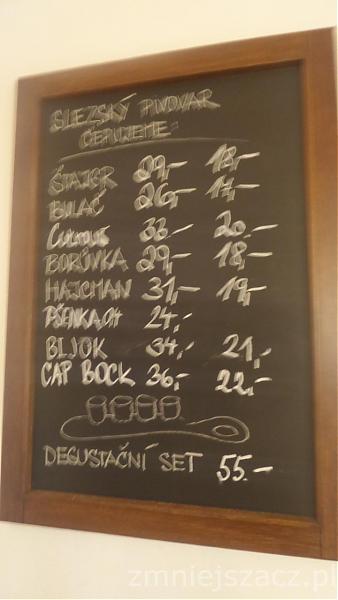 SLEZSKÝ PIVOVAR
ČEPUJEME:
ŠTAJGR 29,- 18,-
BULAČ 26,- 17,-
33,- 20,-
BORŮVKA 29,- 18,-
HAJCMAN 31,- 19,-
PŠENKA 24,-
BIJOK 34,- 21,-
CAP BOCK 36,- 22,-
DEGUSTAČNÍ SET 55.-
zmniejszacz.pl